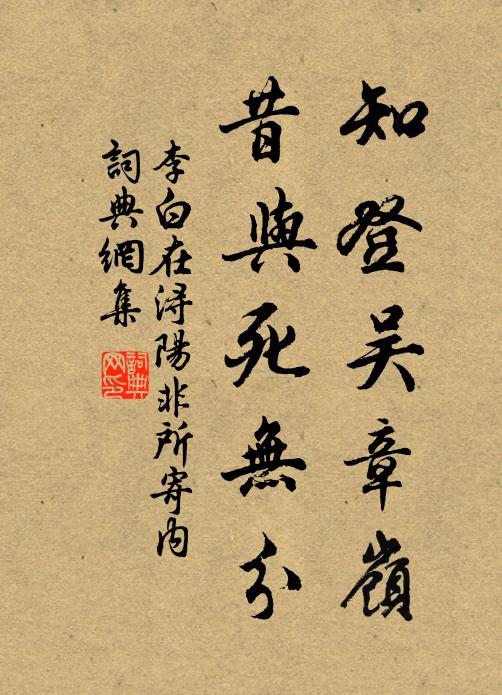 知登吴章嶺
昔與死無分
李白在潯陽非所寄內
詞典網集
詞典
网印